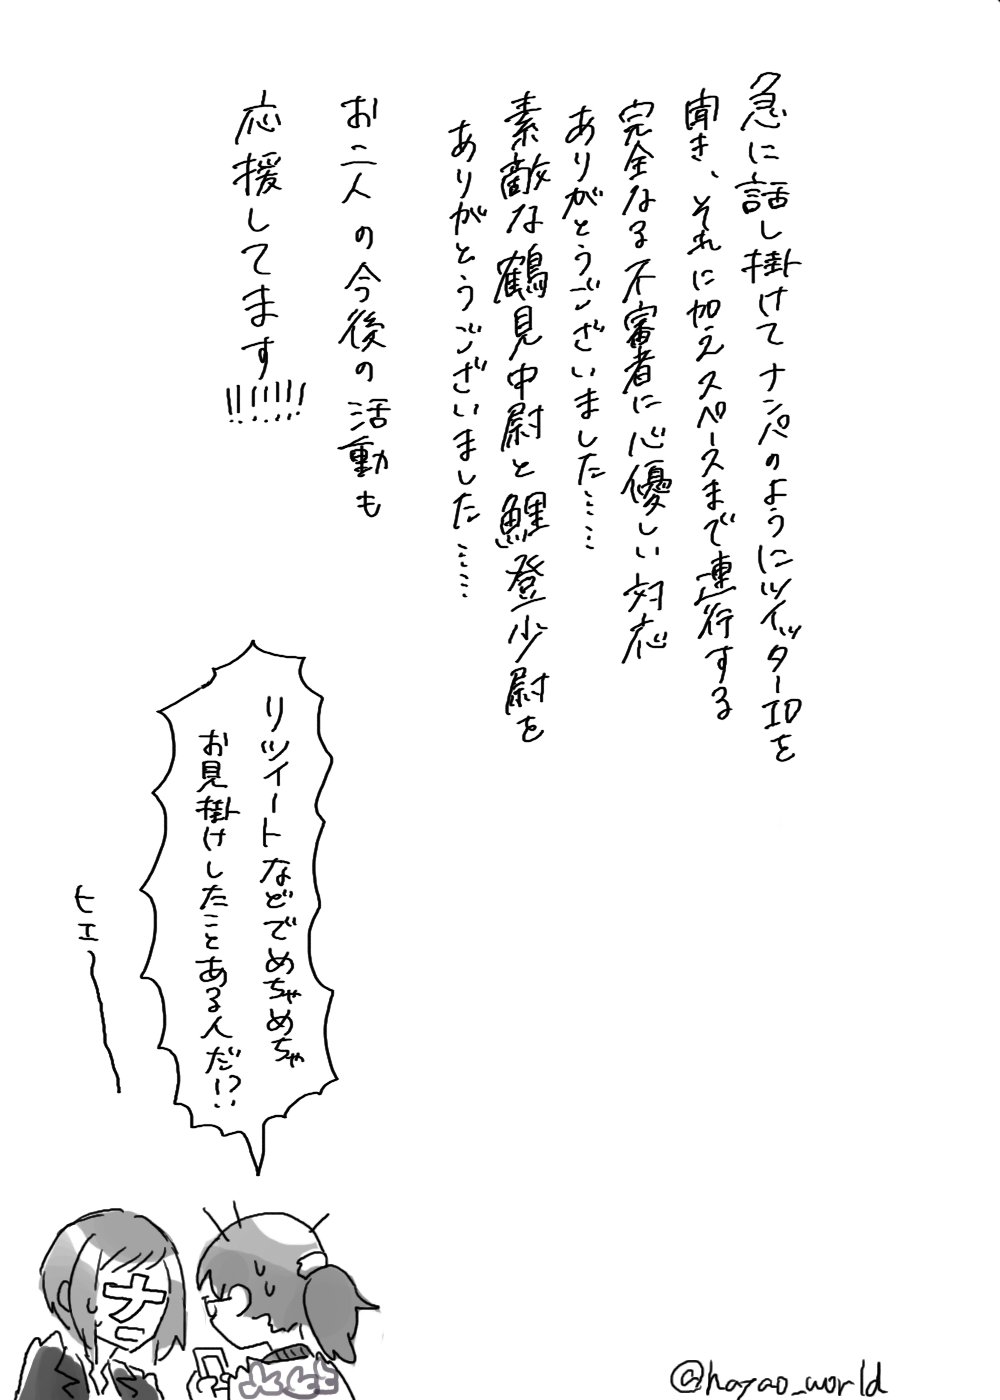 急に話し掛けてナンパのようにツイッターIDを
聞き、それに加えスペースまで連行する
完全なる不審者に心優しい対応
ありがとうございました……
素敵な鶴見中尉と鯉登少尉を
ありがとうございました……
お二人の今後の活動も
応援してます!!!!!!!
リツイートなどでめちゃめちゃ
お見掛けしたことある人だ!?
ヒエー
ナ
@hayao_world